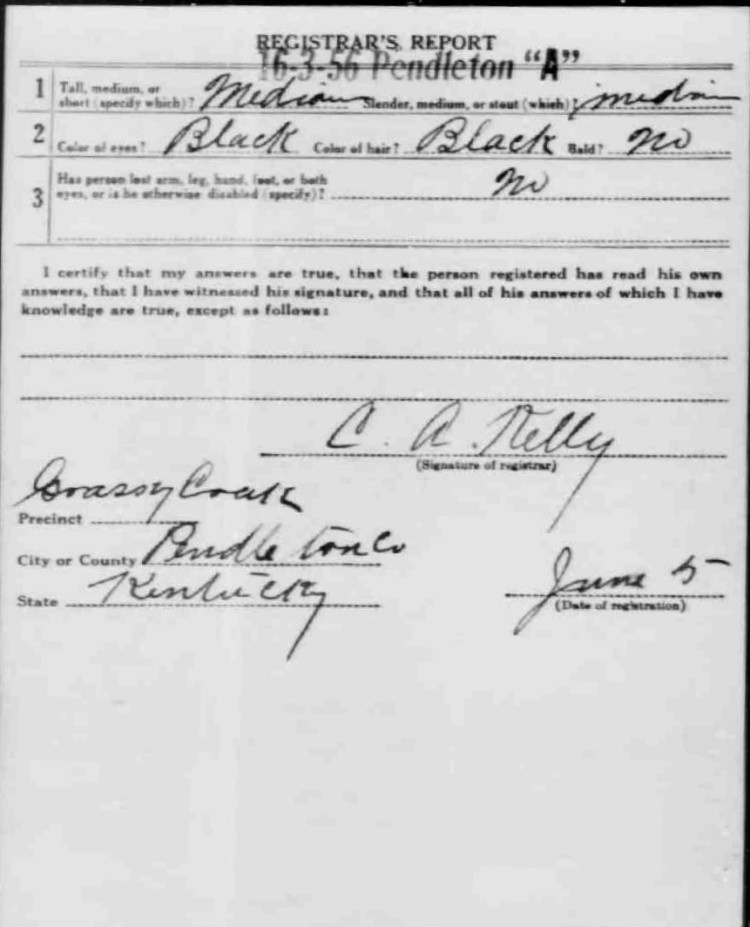 REGISTRAR'S REPORT
16-3-56 Pendleton "A"
1 Tall, medium, or short (specify which)? Medium Slender, medium, or stout (which)? medium
2 Color of eyes? Black Color of hair? Black Bald? No
3 Has person lost arm, leg, hand, foot, or both
eyes, or is he otherwise disabled (specify)? No
I certify that my answers are true, that the person registered has read his own
answers, that I have witnessed his signature, and that all of his answers of which I have
knowledge are true, except as follows:
C. A. Kelly
(Signature of registrar)
Precinct Grassy Creek
City or County Pendleton Co
State Kentucky
June 5
(Date of registration)